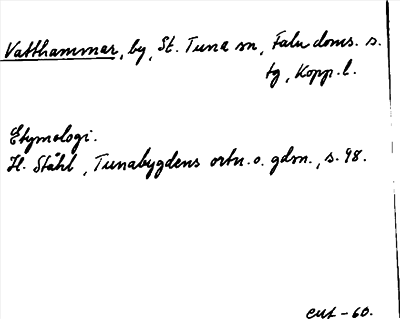 Vatthammar, by, St. Tuna sn, Falu doms. s.
tg, Kopp. l.
Etymologi.
H. Ståhl, Tunabygdens ortn. o. gdsn., s. 98.
EUT - 60.